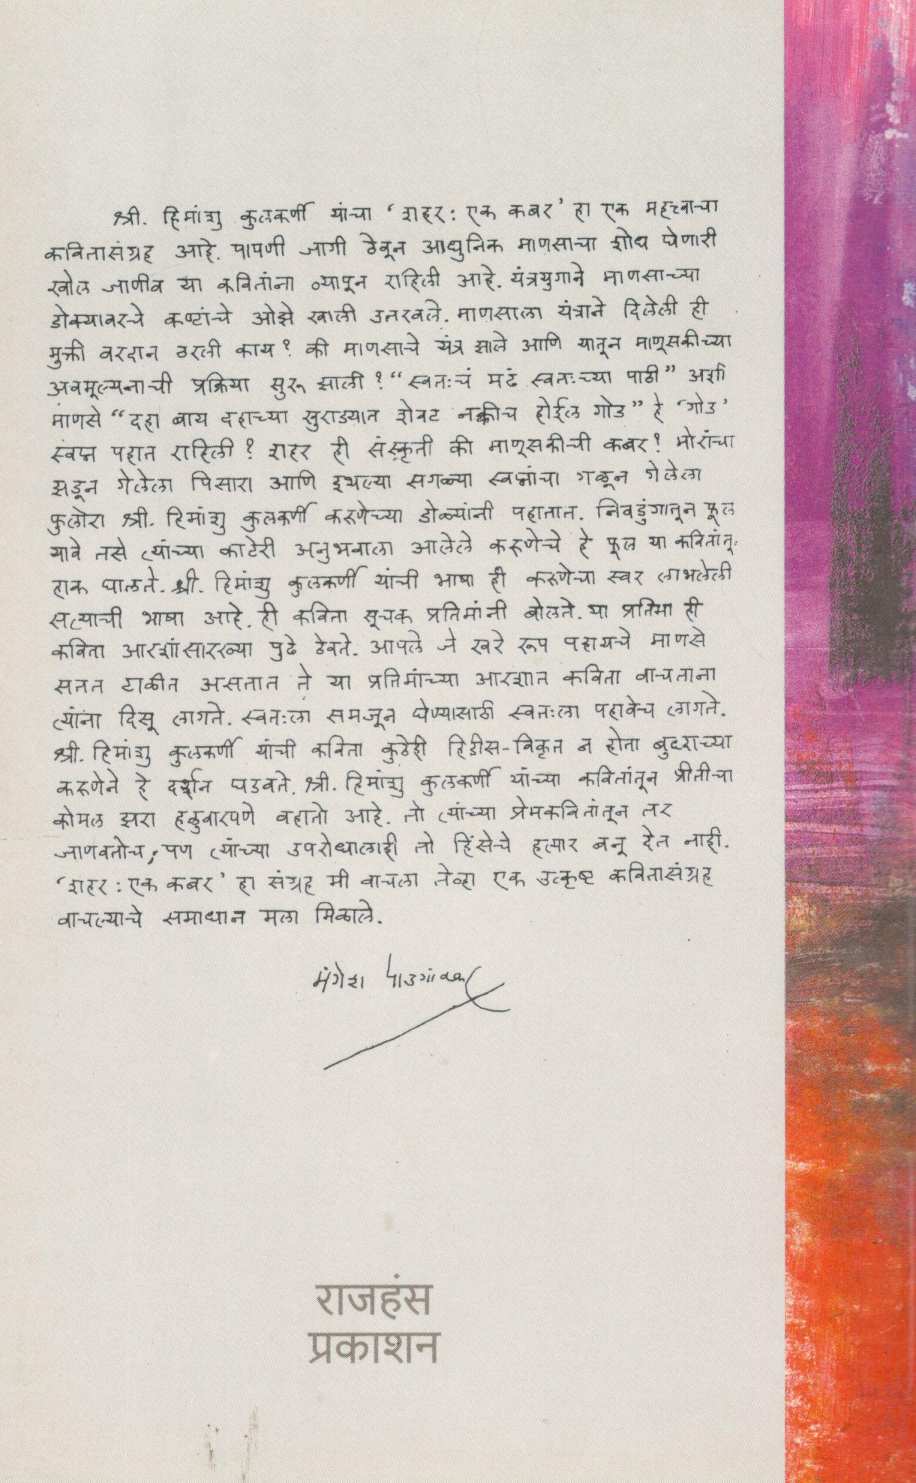 श्री. हिमांशु कुलकर्णी यांचा ‘शहर : एक कबर’ हा एक महत्त्वाचा
कवितासंग्रह आहे. पापणी जागी ठेवून आधुनिक माणसाचा शोध घेणारी
खोल जाणीव या कवितांना व्यापून राहिली आहे. यंत्रयुगाने माणसाच्या
डोक्यावरचे कष्टांचे ओझे खाली उतरवले. माणसाला यंत्राने दिलेली ही
मुक्ती वरदान ठरली काय? की माणसाचे यंत्र झाले आणि यातून माणूसकीच्या
अवमूल्यनाची प्रक्रिया सुरू झाली? “स्वतःचं मढं स्वतःच्या पाठी” अशी
माणसे “दहा बाय दहाच्या खुराड्यात शेवट नक्कीच होईल गोड” हे ‘गोड’
स्वप्न पहात राहिली? शहर ही संस्कृती की माणूसकीची कबर? मोरांचा
झडून गेलेला पिसारा आणि इथल्या सगळ्या स्वप्नांचा गळून गेलेला
फुलोरा श्री. हिमांशु कुलकर्णी करूणेच्या डोळ्यांनी पहातात. निवडुंगातून फूल
यावे तसे त्यांच्या काटेरी अनुभवाला आलेले करूणेचे हे फूल या कवितांतून
हाक घालते. श्री. हिमांशु कुलकर्णी यांची भाषा ही करूणेचा स्वर लाभलेली
सत्याची भाषा आहे. ही कविता सूचक प्रतिमांनी बोलते. या प्रतिमा ही
कविता आरशांसारख्या पुढे ठेवते. आपले जे खरे रूप पहायचे माणसे
सतत टाळीत असतात ते या प्रतिमांच्या आरशात कविता वाचताना
त्यांना दिसू लागते. स्वतःला समजून घेण्यासाठी स्वतःला पहावेच लागते.
श्री. हिमांशु कुलकर्णी यांची कविता कुठेही हिडीस-विकृत न होता बुद्धाच्या
करूणेने हे दर्शन घडवते. श्री. हिमांशु कुलकर्णी यांच्या कवितांतून प्रीतीचा
कोमल झरा हळुवारपणे वहातो आहे. तो त्यांच्या प्रेमकवितांतून तर
जाणवतोच, पण त्यांच्या उपरोधालाही तो हिंसेचे हत्यार बनू देत नाही.
‘शहर : एक कबर’ हा संग्रह मी वाचला तेव्हा एक उत्कृष्ट कवितासंग्रह
वाचल्याचे समाधान मला मिळाले.
मंगेश पाडगांवकर
राजहंस
प्रकाशन